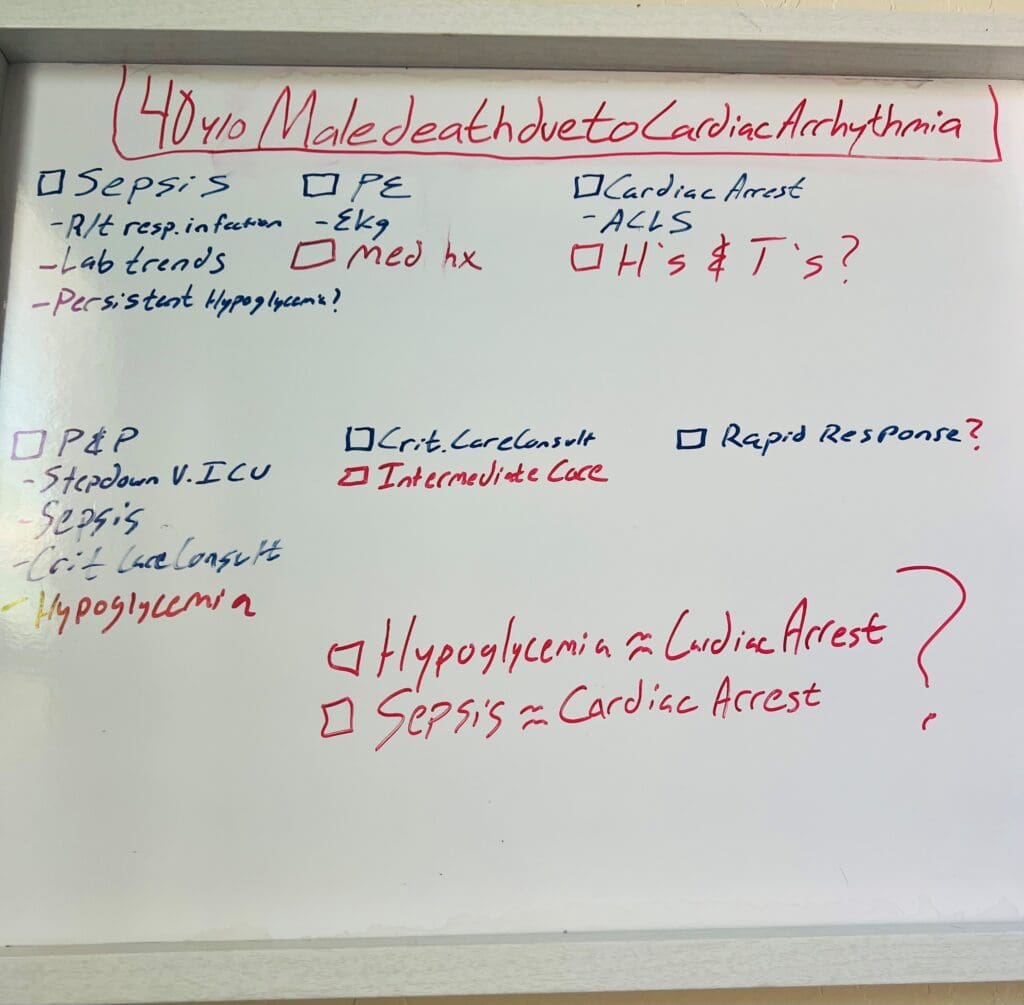 40 y/o Male death due to Cardiac Arrhythmia
Sepsis
- R/t resp. infection
- Lab trends
- Persistent Hypoglycemia?
PE
- Ekg
Med hx
Cardiac Arrest
- ACLS
H's & T's?
P&P
- Stepdown V. ICU
- Sepsis
- Crit Care Consult
- Hypoglycemia
Crit. Care Consult
Intermediate Care
Rapid Response?
Hypoglycemia ≈ Cardiac Arrest
Sepsis ≈ Cardiac Arrest
?